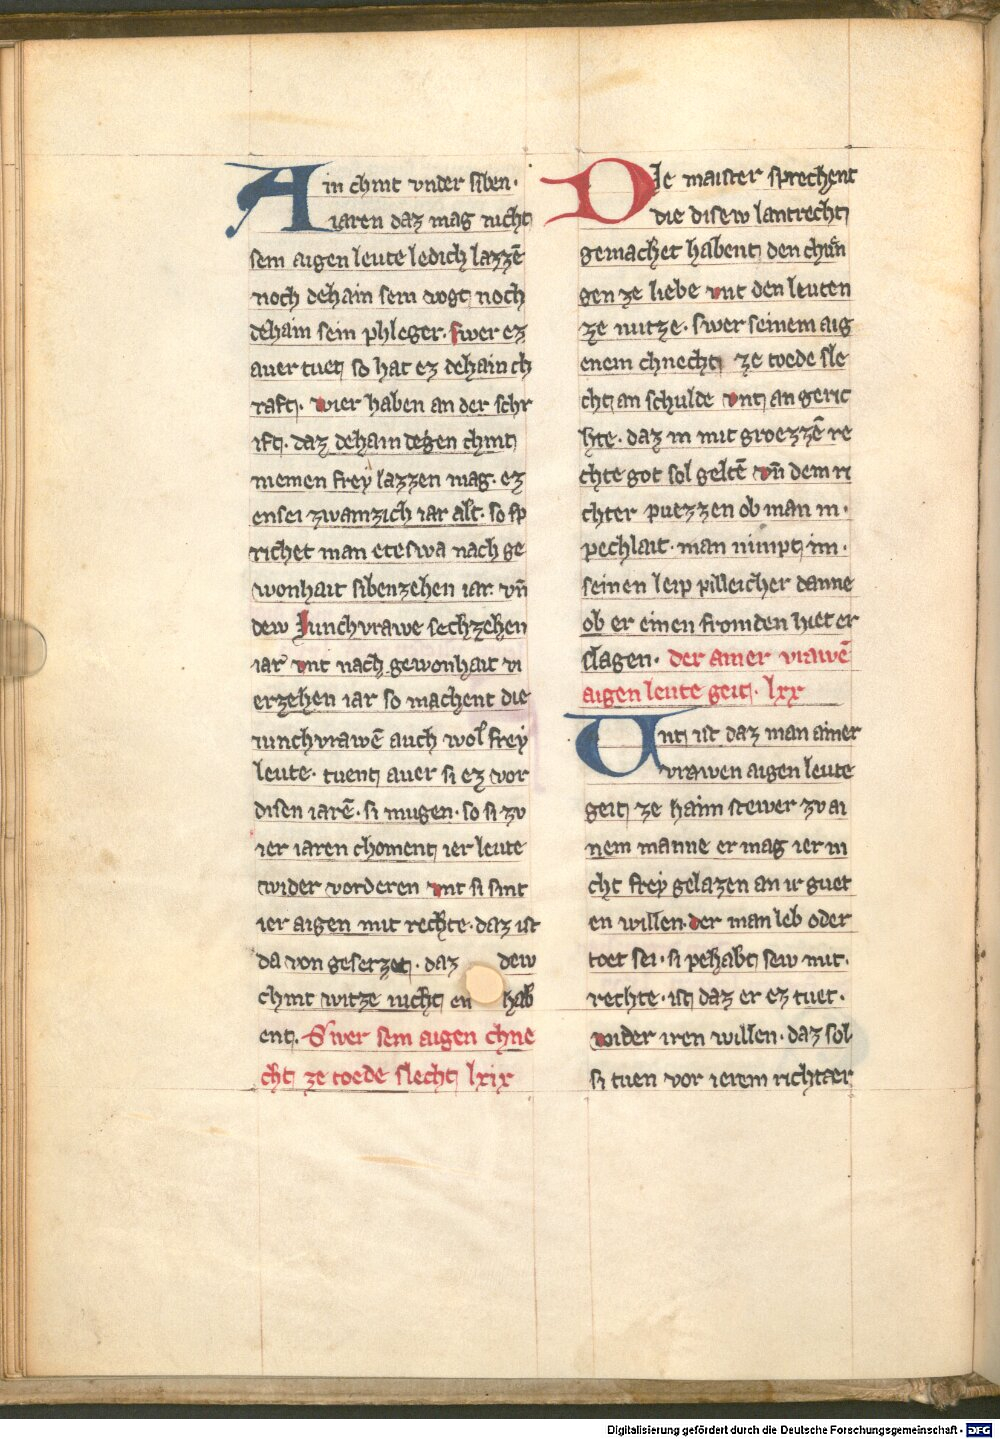 Ain chint vnder siben·
iaren daz mag nicht
sein aigen leute ledich lazzē
noch dehain sein vogt noch
dehain sein phleger. swer ez
auer tuet so hat ez dehain ch
raft. wier haben an der schr
ift. daz dehain degen chint
niemen frey lazzen mag. ez
ensei zwainzich iar alt. so sp
richet man eteswa nach ge
wonhait sibenzehen iar. vn̄
dew Junchvrawe sechzehen
iar vnt nach gewonhait vi
erzehen iar so machent die
iunchvrawē auch wol frey
leute. tuent auer si ez vor
disen iarē. si mugen. so si zv
ier iaren choment ier leute
wider vorderen vnt si sint
ier aigen mit rechte. daz ist
da von gesetzet. daz dew
chint witze nicht en hab
ent. Swer sein aigen chne
cht ze toede slecht lxix
DJe maister sprechent
die disew lantrecht
gemachet habent den chün
gen ze liebe vnt den leuten
ze nutze. swer seinem aig
enem chnecht ze toede sle
cht an schulde vnt an geric
hte. daz in mit groezzē re
chte got sol geltē vn̄ dem ri
chter puezzen ob man in.
pechlait. man nimpt im.
seinen leip pilleicher danne
ob er einen fromden hiet er
slagen. der ainer vrawē
aigen leute geit. lxx
Vnt ist daz man ainer
vrawen aigen leute
geit ze haim stewer zv ai
nem manne er mag ier ni
cht frey gelazen an ir guet
en willen. der man leb oder
toet sei. si pehabt sew mit.
rechte. ist daz er ez tuet.
wider iren willen. daz sol
si tuen vor ierem richtær
Digitalisierung gefördert durch die Deutsche Forschungsgemeinschaft - DFG